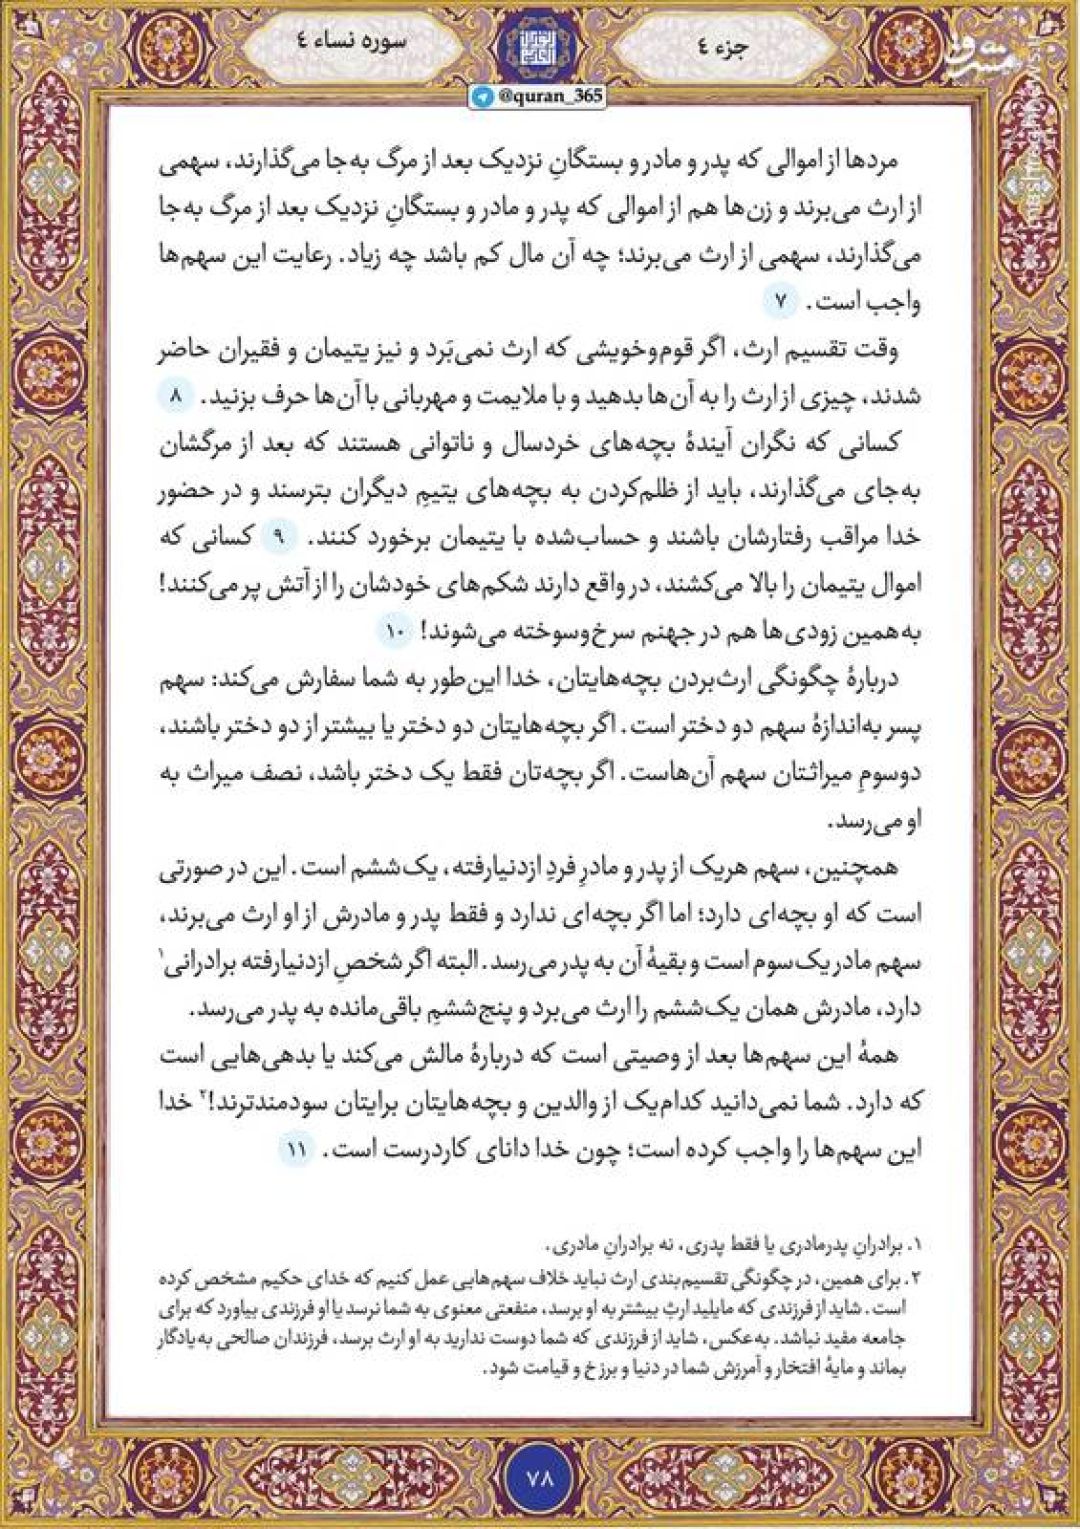 جزء ٤
سوره نساء ٤
@quran_365
مردها از اموالی که پدر و مادر و بستگانِ نزدیک بعد از مرگ به‌جا می‌گذارند، سهمی
از ارث می‌برند و زن‌ها هم از اموالی که پدر و مادر و بستگانِ نزدیک بعد از مرگ به‌جا
می‌گذارند، سهمی از ارث می‌برند؛ چه آن مال کم باشد چه زیاد. رعایت این سهم‌ها
واجب است. ۷
وقت تقسیم ارث، اگر قوم‌وخویشی که ارث نمی‌بَرد و نیز یتیمان و فقیران حاضر
شدند، چیزی از ارث را به آن‌ها بدهید و با ملایمت و مهربانی با آن‌ها حرف بزنید. ۸
کسانی که نگران آیندهٔ بچه‌های خردسال و ناتوانی هستند که بعد از مرگشان
به‌جای می‌گذارند، باید از ظلم‌کردن به بچه‌های یتیمِ دیگران بترسند و در حضور
خدا مراقب رفتارشان باشند و حساب‌شده با یتیمان برخورد کنند. ۹ کسانی که
اموال یتیمان را بالا می‌کشند، در واقع دارند شکم‌های خودشان را از آتش پر می‌کنند!
به‌همین زودی‌ها هم در جهنم سرخ‌وسوخته می‌شوند! ۱۰
دربارهٔ چگونگی ارث‌بردن بچه‌هایتان، خدا این‌طور به شما سفارش می‌کند: سهم
پسر به‌اندازهٔ سهم دو دختر است. اگر بچه‌هایتان دو دختر یا بیشتر از دو دختر باشند،
دوسومِ میراثتان سهم آن‌هاست. اگر بچه‌تان فقط یک دختر باشد، نصف میراث به
او می‌رسد.
همچنین، سهم هریک از پدر و مادرِ فردِ ازدنیارفته، یک‌ششم است. این در صورتی
است که او بچه‌ای دارد؛ اما اگر بچه‌ای ندارد و فقط پدر و مادرش از او ارث می‌برند،
سهم مادر یک‌سوم است و بقیهٔ آن به پدر می‌رسد. البته اگر شخصِ ازدنیارفته برادرانی۱
دارد، مادرش همان یک‌ششم را ارث می‌برد و پنج‌ششمِ باقی‌مانده به پدر می‌رسد.
همهٔ این سهم‌ها بعد از وصیتی است که دربارهٔ مالش می‌کند یا بدهی‌هایی است
که دارد. شما نمی‌دانید کدام‌یک از والدین و بچه‌هایتان برایتان سودمندترند!۲ خدا
این سهم‌ها را واجب کرده است؛ چون خدا دانای کاردرست است. ۱۱
۱. برادرانِ پدرمادری یا فقط پدری، نه برادرانِ مادری.
۲. برای همین، در چگونگی تقسیم‌بندی ارث نباید خلاف سهم‌هایی عمل کنیم که خدای حکیم مشخص کرده
است. شاید از فرزندی که مایلید ارثِ بیشتر به او برسد، منفعتی معنوی به شما نرسد یا او فرزندی بیاورد که برای
جامعه مفید نباشد. به‌عکس، شاید از فرزندی که شما دوست ندارید به او ارث برسد، فرزندان صالحی به‌یادگار
بماند و مایهٔ افتخار و آمرزش شما در دنیا و برزخ و قیامت شود.
۷۸